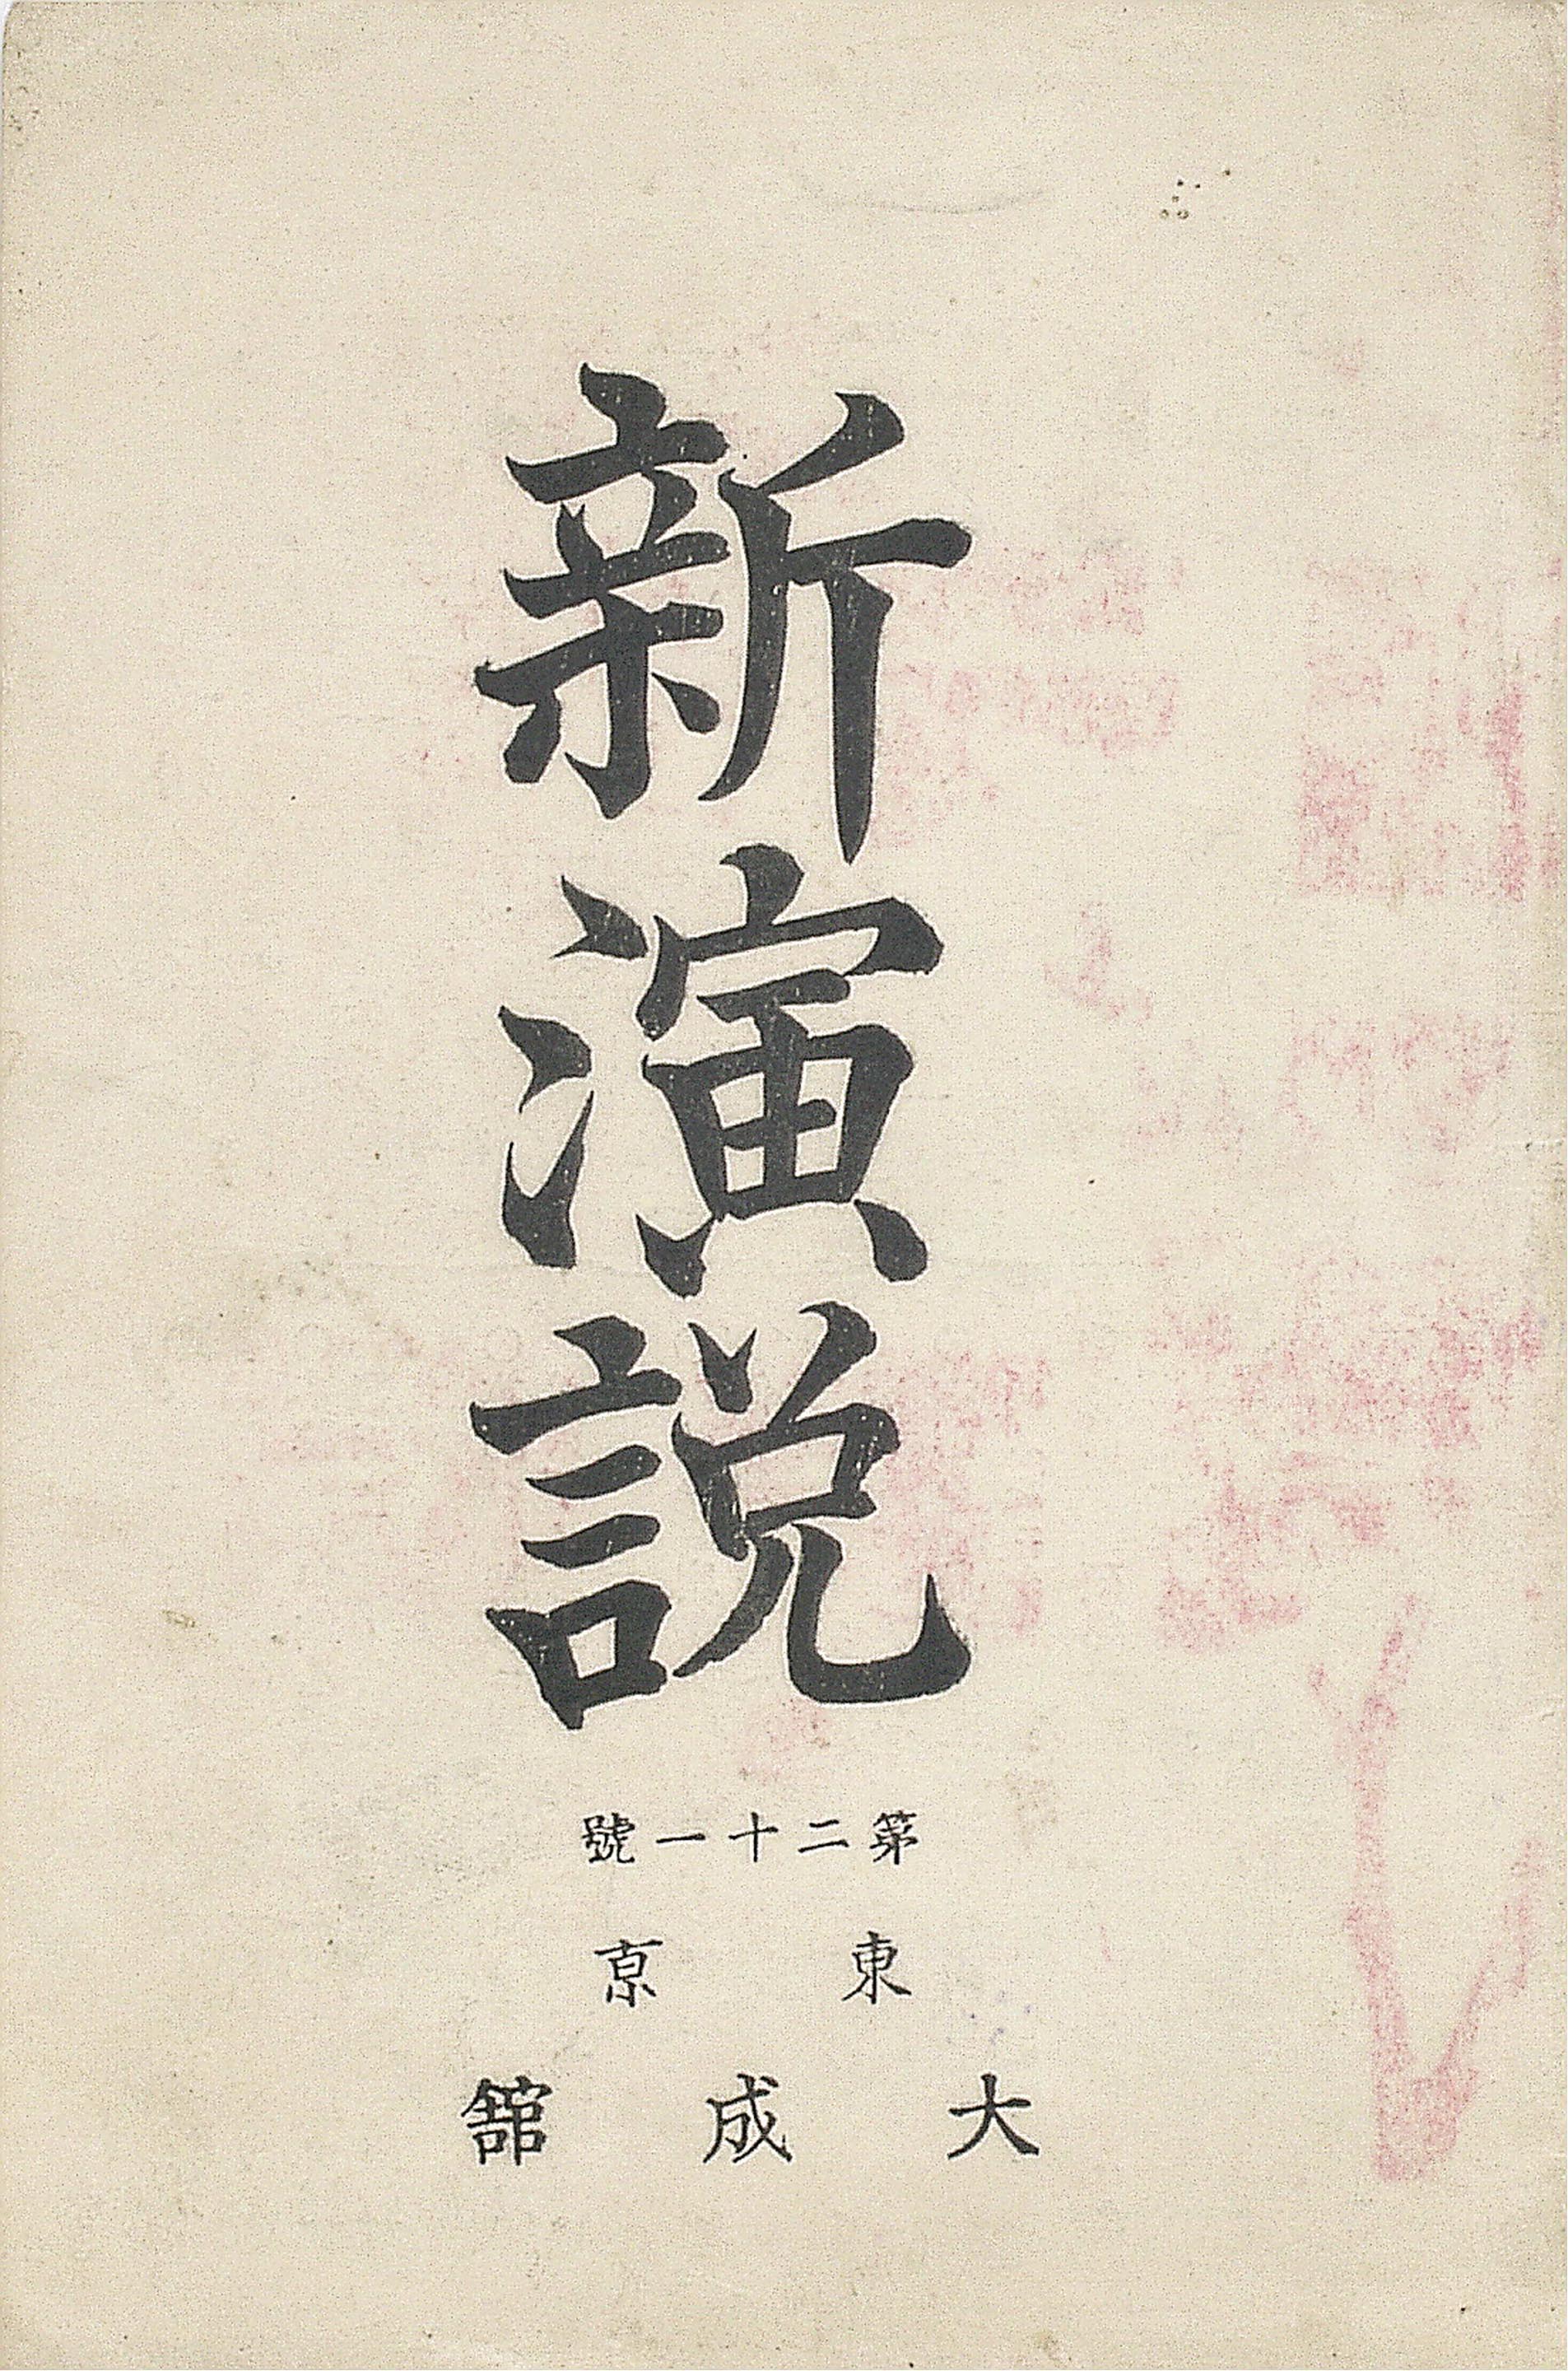 新演説
第二十一號
東京
大成舘